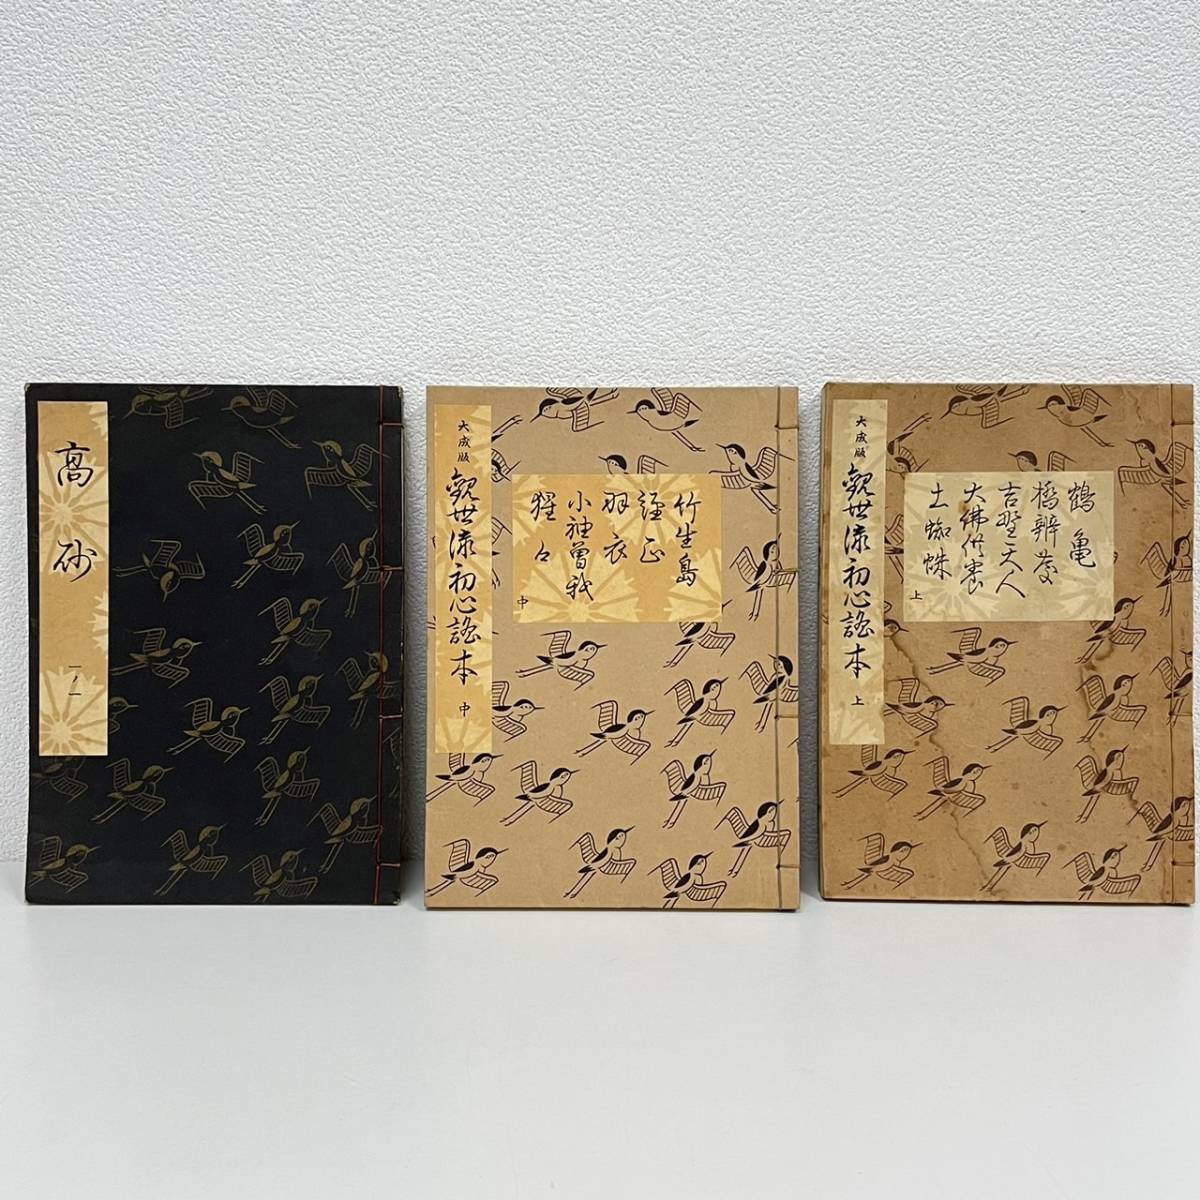 高砂
一ノ一
大成版
観世流初心謡本
中
竹生島
経正
羽衣
小袖曽我
猩々
中
大成版
観世流初心謡本
上
鶴亀
橋辨慶
吉野天人
大佛供養
土蜘蛛
上